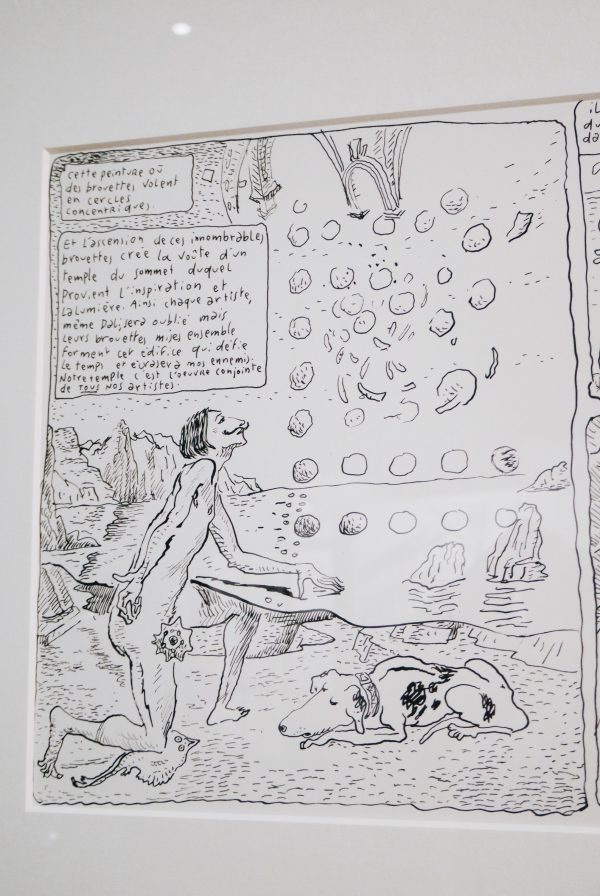 cette peinture où
des brouettes volent
en cercles
concentriques.
Et l'ascension de ces innombrables
brouettes crée la voûte d'un
temple du sommet duquel
provient l'inspiration et
la lumière. Ainsi chaque artiste,
même Dali, sera oublié mais
leurs brouettes mises ensemble
forment cet édifice qui défie
le temps et écrasera nos ennemis.
Notre temple c'est l'oeuvre conjointe
de tous nos artistes.
il
du
da